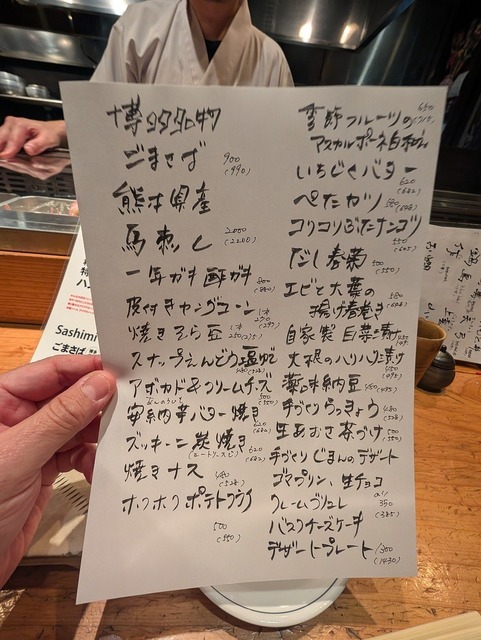 博多名物
ごまさば 900 (990)
熊本県産
馬刺し 2000 (2200)
一年ガキ 酢ガキ 800 (880)
皮付きヤングコーン 1本
焼きそら豆 1本 250(275)
スナップえんどう塩ゆで 480 (528)
アボカド&クリームチーズ 500 (550)
あんのういも
安納芋バター焼き 620 (682)
ズッキーニ炭焼き 620 (682)
焼きナス 480 (528)
ホクホクポテトフライ
500
(550)
季節フルーツの 650
マスカルポーネ白和え
いちじくバター 620 (682)
ぺたカツ
コリコリぶたナンコツ 550 (605)
だし春菊 500 (550)
エビと大葉の
揚げ春巻き 580
自家製 白菜漬け
大根のハリハリ漬け 450 (495)
薬味納豆 450(495)
手づくりらっきょう 480 (528)
生あおさ茶づけ 500 (550)
手づくりじまんのデザート
ゴマプリン、生チョコ
クレームブリュレ 350 (385)
バスクチーズケーキ
デザートプレート 1300 (1430)
Sashimi
ごまさば